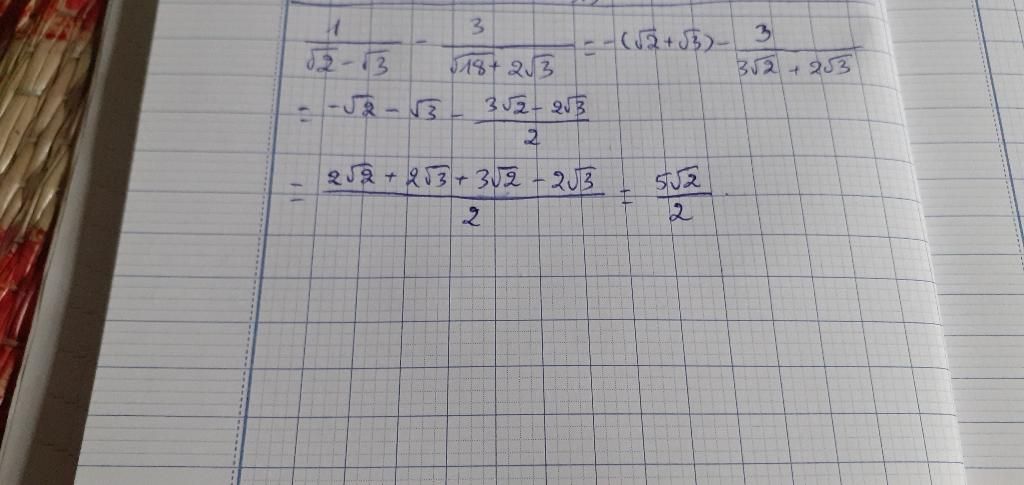 1/(√2 - √3) - 3/(√18 + 2√3) = -(√2 + √3) - 3/(3√2 + 2√3)
= -√2 - √3 - (3√2 - 2√3)/2
= (2√2 + 2√3 + 3√2 - 2√3)/2 = 5√2/2.